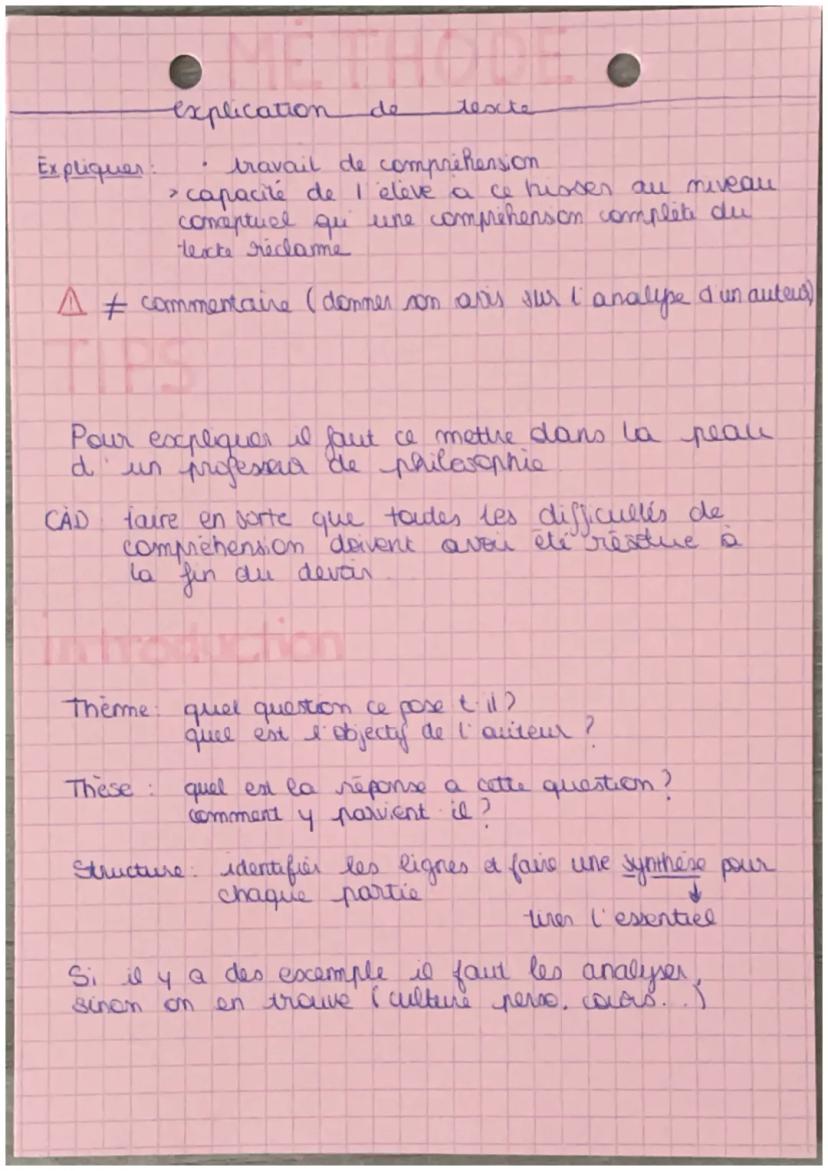 MÉTHODE
explication de texte
Expliquer : • travail de compréhension
> capacité de l'élève a ce hisser au niveau
conceptuel qu'une compréhension complète du
texte réclame
⚠ ≠ commentaire (donner son avis sur l'analyse d'un auteur)
TIPS
Pour expliquer il faut ce mettre dans la peau
d'un professeur de philosophie
CÀD faire en sorte que toutes les difficultés de
compréhension doivent avoir été résolue à
la fin du devoir
introduction
Thème : quel question ce pose t-il ?
quel est l'objectif de l'auteur ?
Thèse : quel est la réponse a cette question ?
comment y parvient il ?
Structure : identifier les lignes et faire une synthèse pour
chaque partie
↓
tirer l'essentiel
Si il y a des exemple il faut les analyser,
sinon on en trouve (culture perso, cours...)